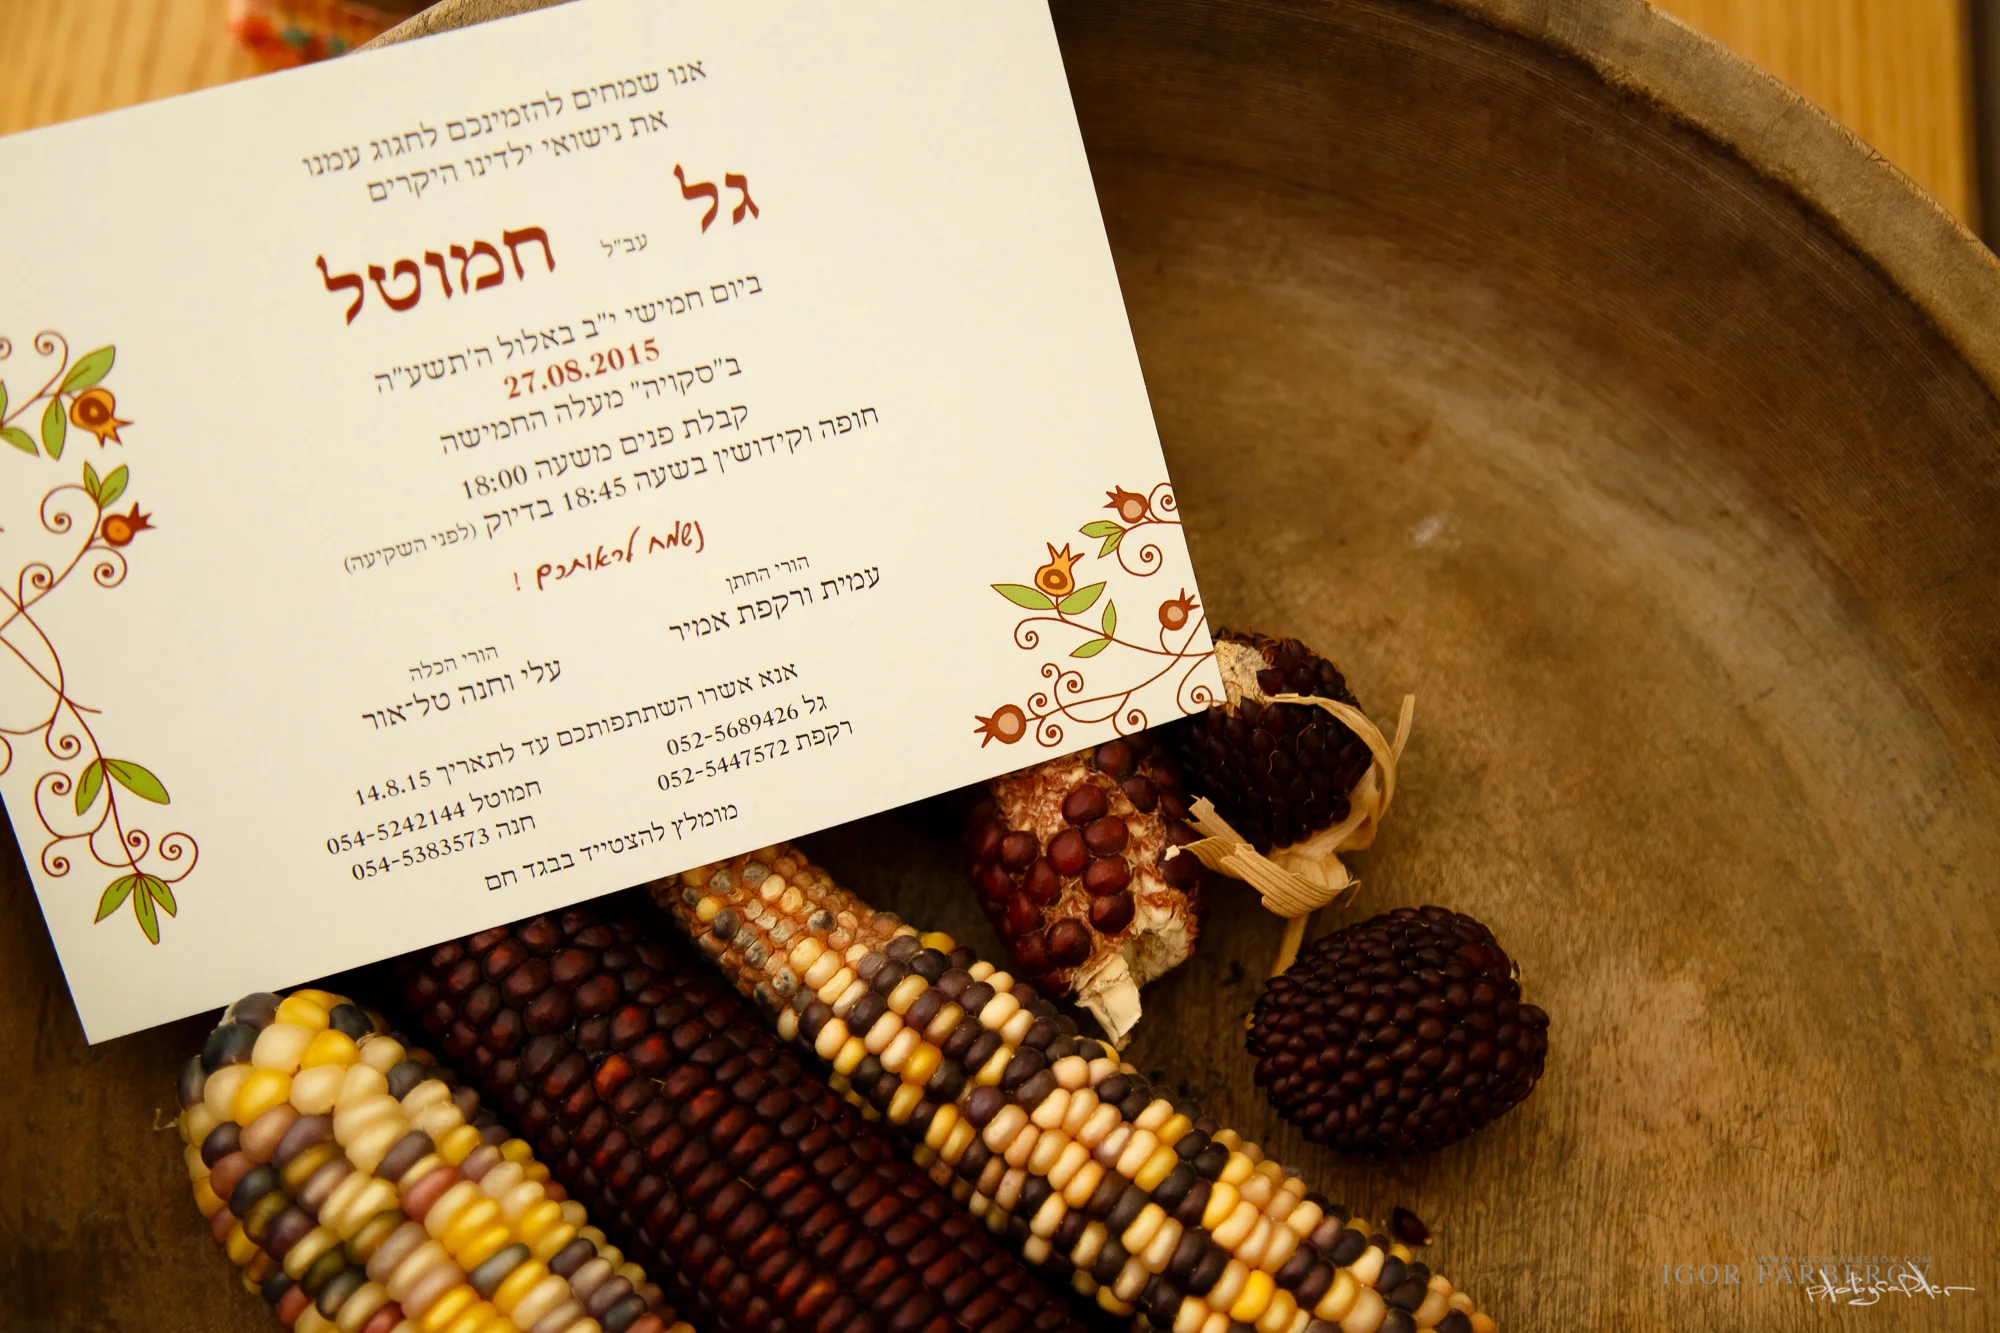 אנו שמחים להזמינכם לחגוג עמנו
את נישואי ילדינו היקרים
גל עב"ל חמוטל
ביום חמישי י"ב באלול ה'תשע"ה
27.08.2015
ב"סקויה" מעלה החמישה
קבלת פנים משעה 18:00
חופה וקידושין בשעה 18:45 בדיוק (לפני השקיעה)
נשמח לראותכם !
הורי החתן
עמית ורקפת אמיר
הורי הכלה
עלי וחנה טל-אור
אנא אשרו השתתפותכם עד לתאריך 14.8.15
גל 052-5689426
רקפת 052-5447572
חמוטל 054-5242144
חנה 054-5383573
מומלץ להצטייד בבגד חם
WWW.IGORFARBEROV.COM
IGOR FARBEROV
photographer